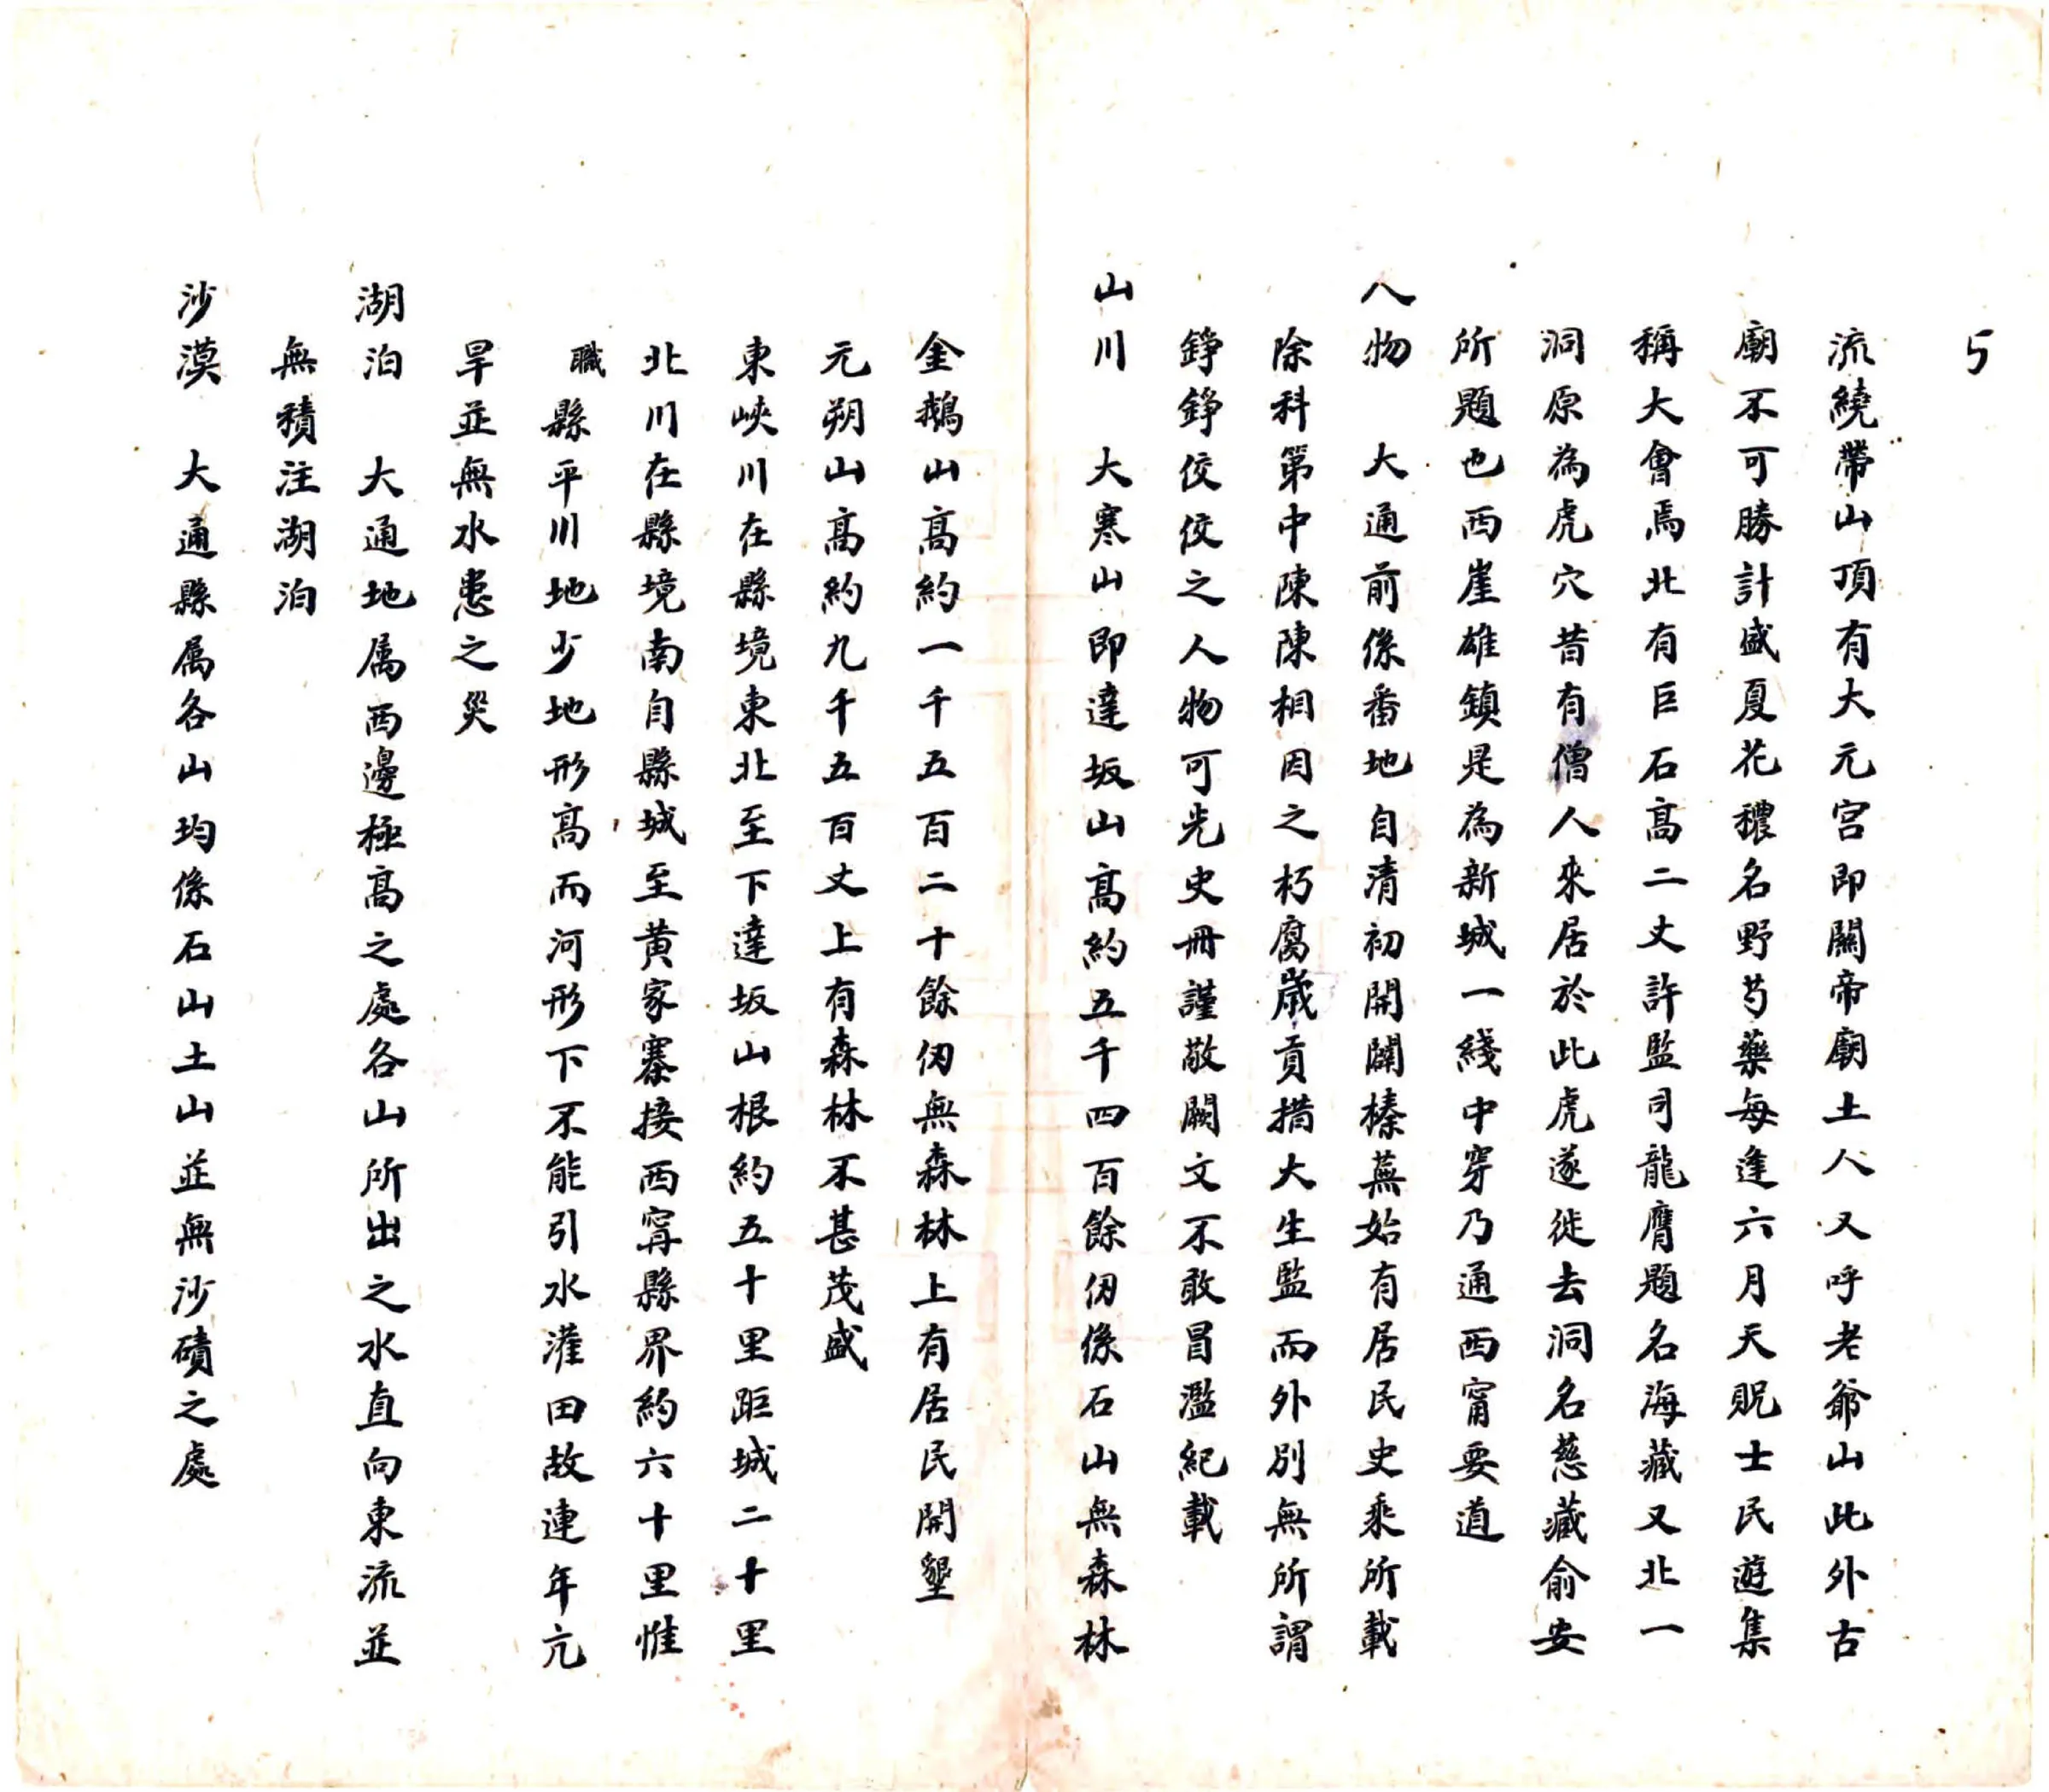 5
流繞帶山頂有大元宮即關帝廟土人又呼老爺山此外古
廟不可勝計盛夏花穠名野芍藥每逢六月天貺士民遊集
稱大會焉北有巨石高二丈許監司龍膺題名海藏又北一
洞原為虎穴昔有僧人來居於此虎遂徙去洞名慈藏俞安
所題也西崖雄鎮是為新城一綫中穿乃通西甯要道
人物　大通前係番地自清初開闢榛蕪始有居民史乘所載
除科第中陳陳相因之朽腐歲貢措大生監而外別無所謂
錚錚佼佼之人物可光史冊謹敬闕文不敢冒濫紀載
山川　大寒山即達坂山高約五千四百餘仞係石山無森林
金鵝山高約一千五百二十餘仞無森林上有居民開墾
元朔山高約九千五百丈上有森林不甚茂盛
東峽川在縣境東北至下達坂山根約五十里距城二十里
北川在縣境南自縣城至黃家寨接西寧縣界約六十里惟
職縣平川地少地形高而河形下不能引水灌田故連年亢
旱並無水患之災
湖泊　大通地属西邊極高之處各山所出之水直向東流並
無積注湖泊
沙漠　大通縣属各山均係石山土山並無沙磧之處